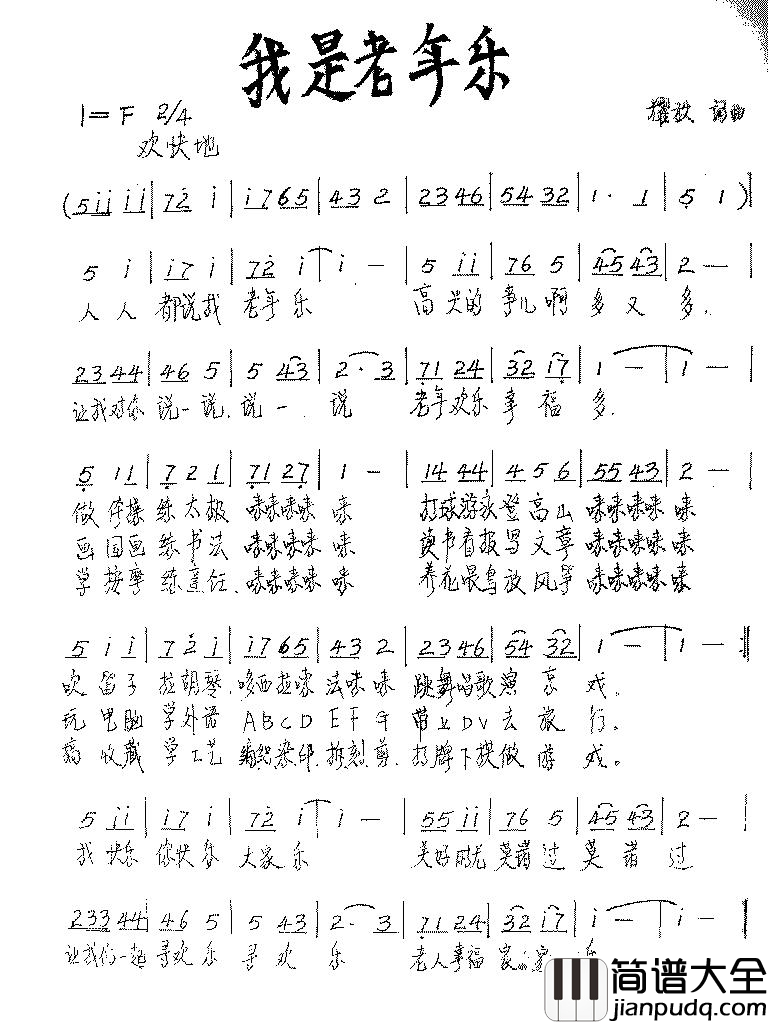 我是老年乐
1=F 2/4
欢快地
词曲
(5i̇i̇ i̇i̇|72̇ i̇|i̇7 65|43 2|23 46|54 32|1· 1|5 1)
5 i̇|i̇7 i̇|72̇ i̇|i̇ —|5 i̇i̇|76 5|45 43|2 —|
人人都说我老年乐 高兴的事儿啊多又多.
23 44|46 5|5 43|2· 3|71 24|32 17|1 —|1 —|
让我对你说一说.说一说 老年欢乐幸福多.
5 11|7 2 1|71 27|1 —|14 44|4 5 6|55 43|2 —|
做体操练太极 咪咪咪咪咪 打球游泳登高山 咪咪咪咪咪
画国画练书法 咪咪咪咪咪 读书看报写文章 咪咪咪咪咪
学按摩练烹饪.咪咪咪咪咪 养花喂鸟放风筝 咪咪咪咪咪
5 i̇ i̇|7 2̇ i̇|i̇7 65|43 2|23 46|54 32|1 —|1 —:|
吹笛子拉胡琴.哆西拉索法咪咪 跳舞唱歌演京戏.
玩电脑学外语 ABCD EFG 带上DV去旅行。
搞收藏学工艺 编织染印.拆刻剪.打牌下棋做游戏。
5 i̇i̇|i̇7 i̇|72̇ i̇|i̇ —|55 i̇i̇|76 5|45 43|2 —|
我快乐你快乐大家乐 美好时光莫错过莫错过
233 44|46 5|5 43|2· 3|71 24|32 i̇7|i̇ —|i̇ —|
让我们一起寻欢乐寻欢乐 老人幸福
简谱大全
jianpudq.com